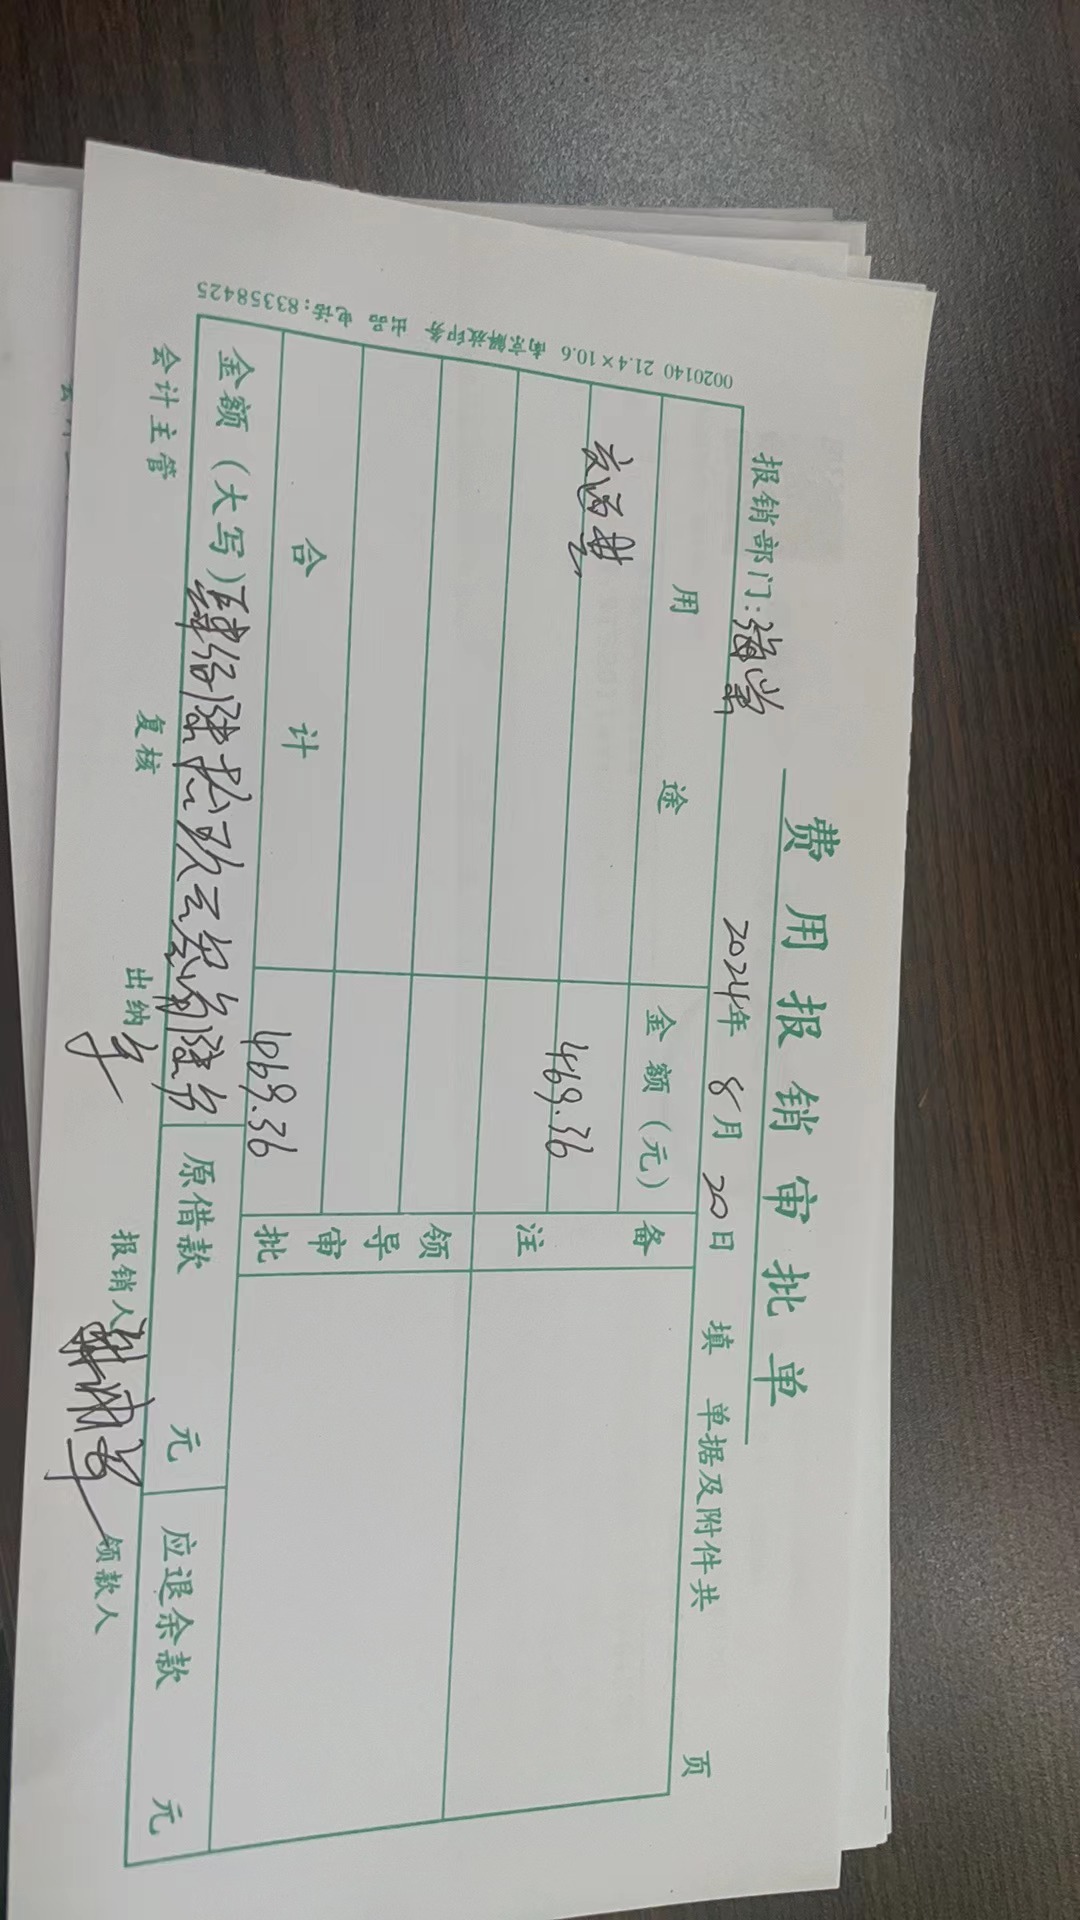 费用报销审批单
报销部门：海棠 2024年 8月 20日 填 单据及附件共 页
用途 金额（元） 备注
交通费 469.36
领导审批
合计 469.36
金额（大写）肆佰陆拾玖元叁角陆分 原借款 元 应退余款 元
会计主管 复核 出纳 报销人 领款人
0020140 21.4×10.6 南京解放印务 出品 电话：83358425